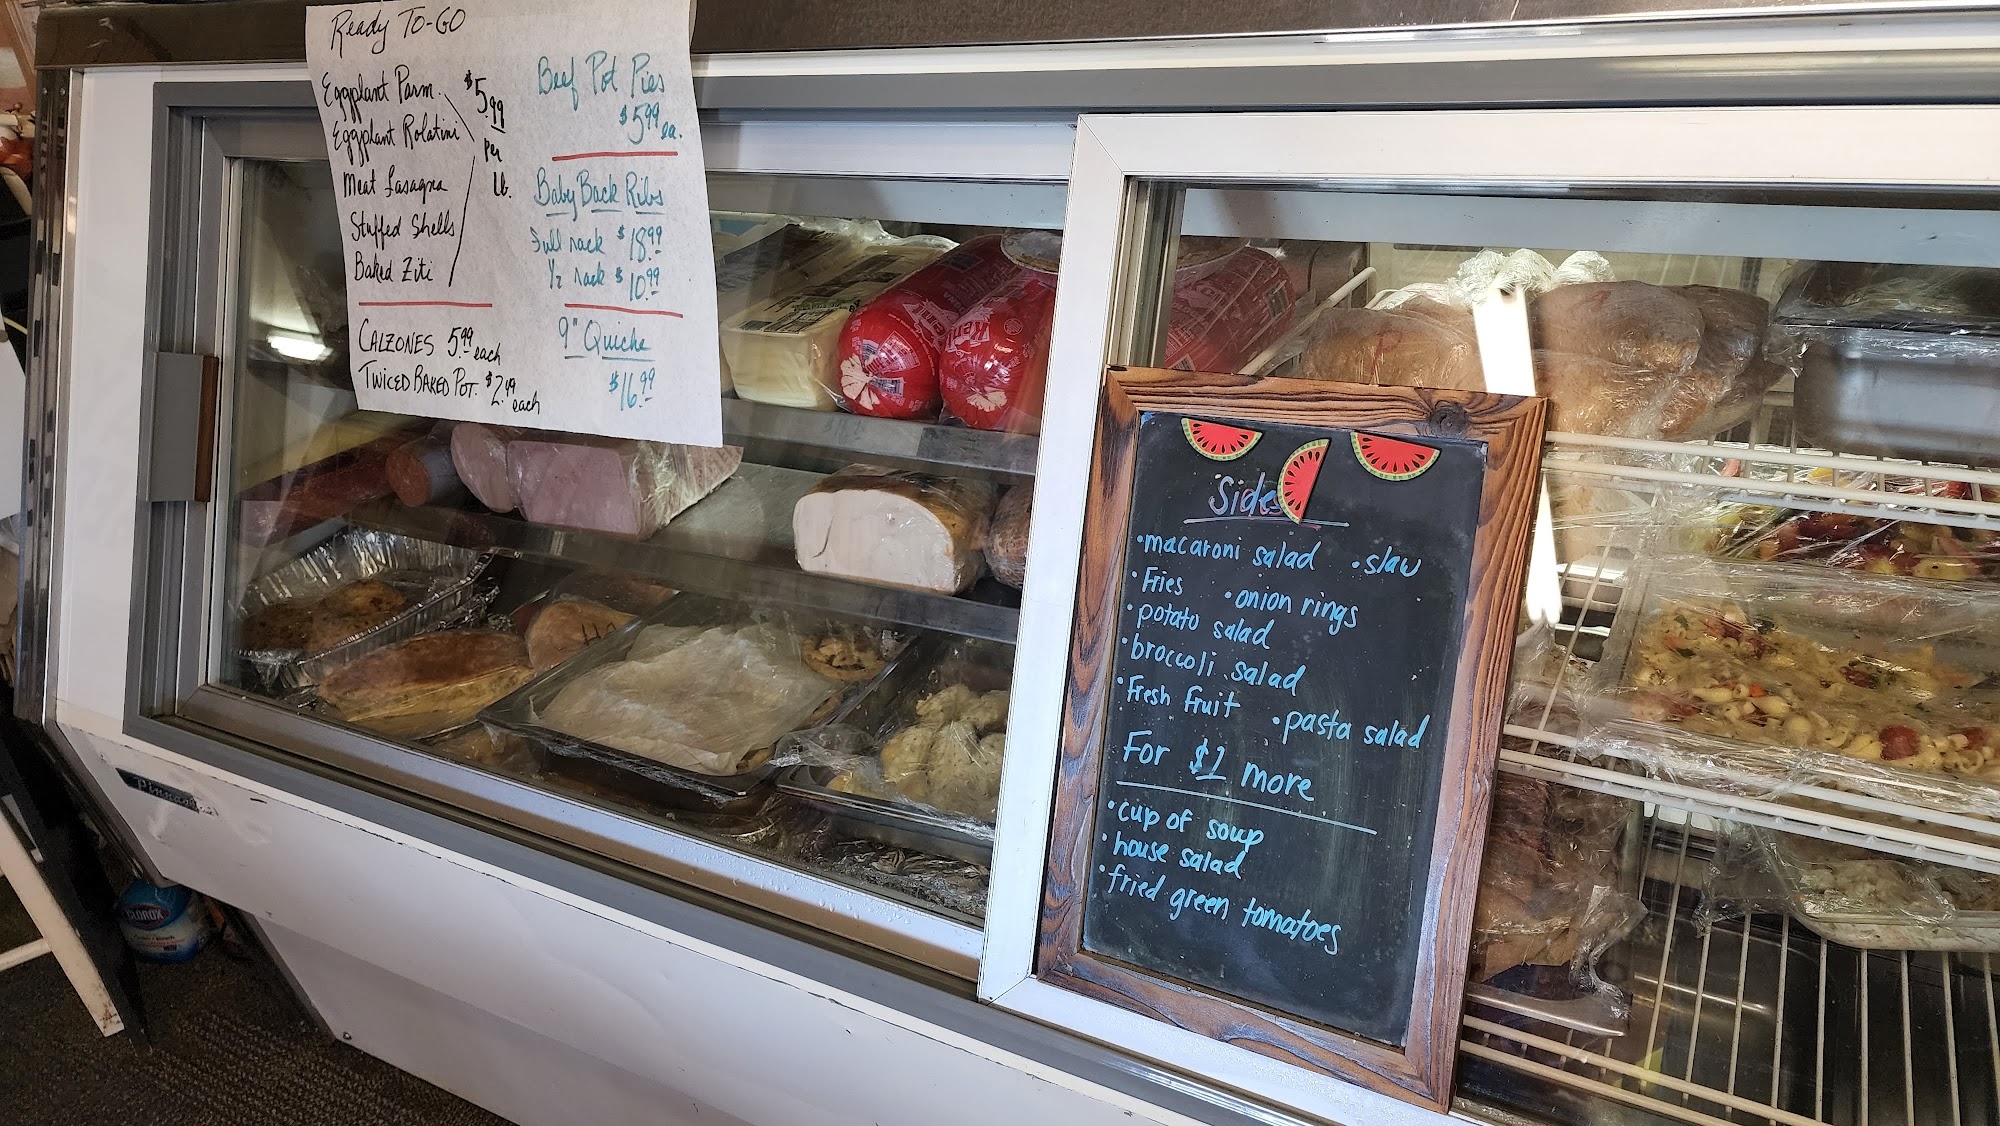 Ready TO-GO
Eggplant Parm.
Eggplant Rolatini
Meat Lasagna
Stuffed Shells
Baked Ziti
$5.99
per
lb.
CALZONES 5.99 each
TWICED BAKED POT. $2.49 each
Beef Pot Pies
$5.99 ea.
Baby Back Ribs
Full rack $18.99
1/2 rack $10.99
9" Quiche
$16.99
Sides
•macaroni salad •slaw
•Fries •onion rings
•potato salad
•broccoli salad
•Fresh Fruit •pasta salad
For $1 more
•cup of soup
•house salad
•fried green tomatoes
CLOROX